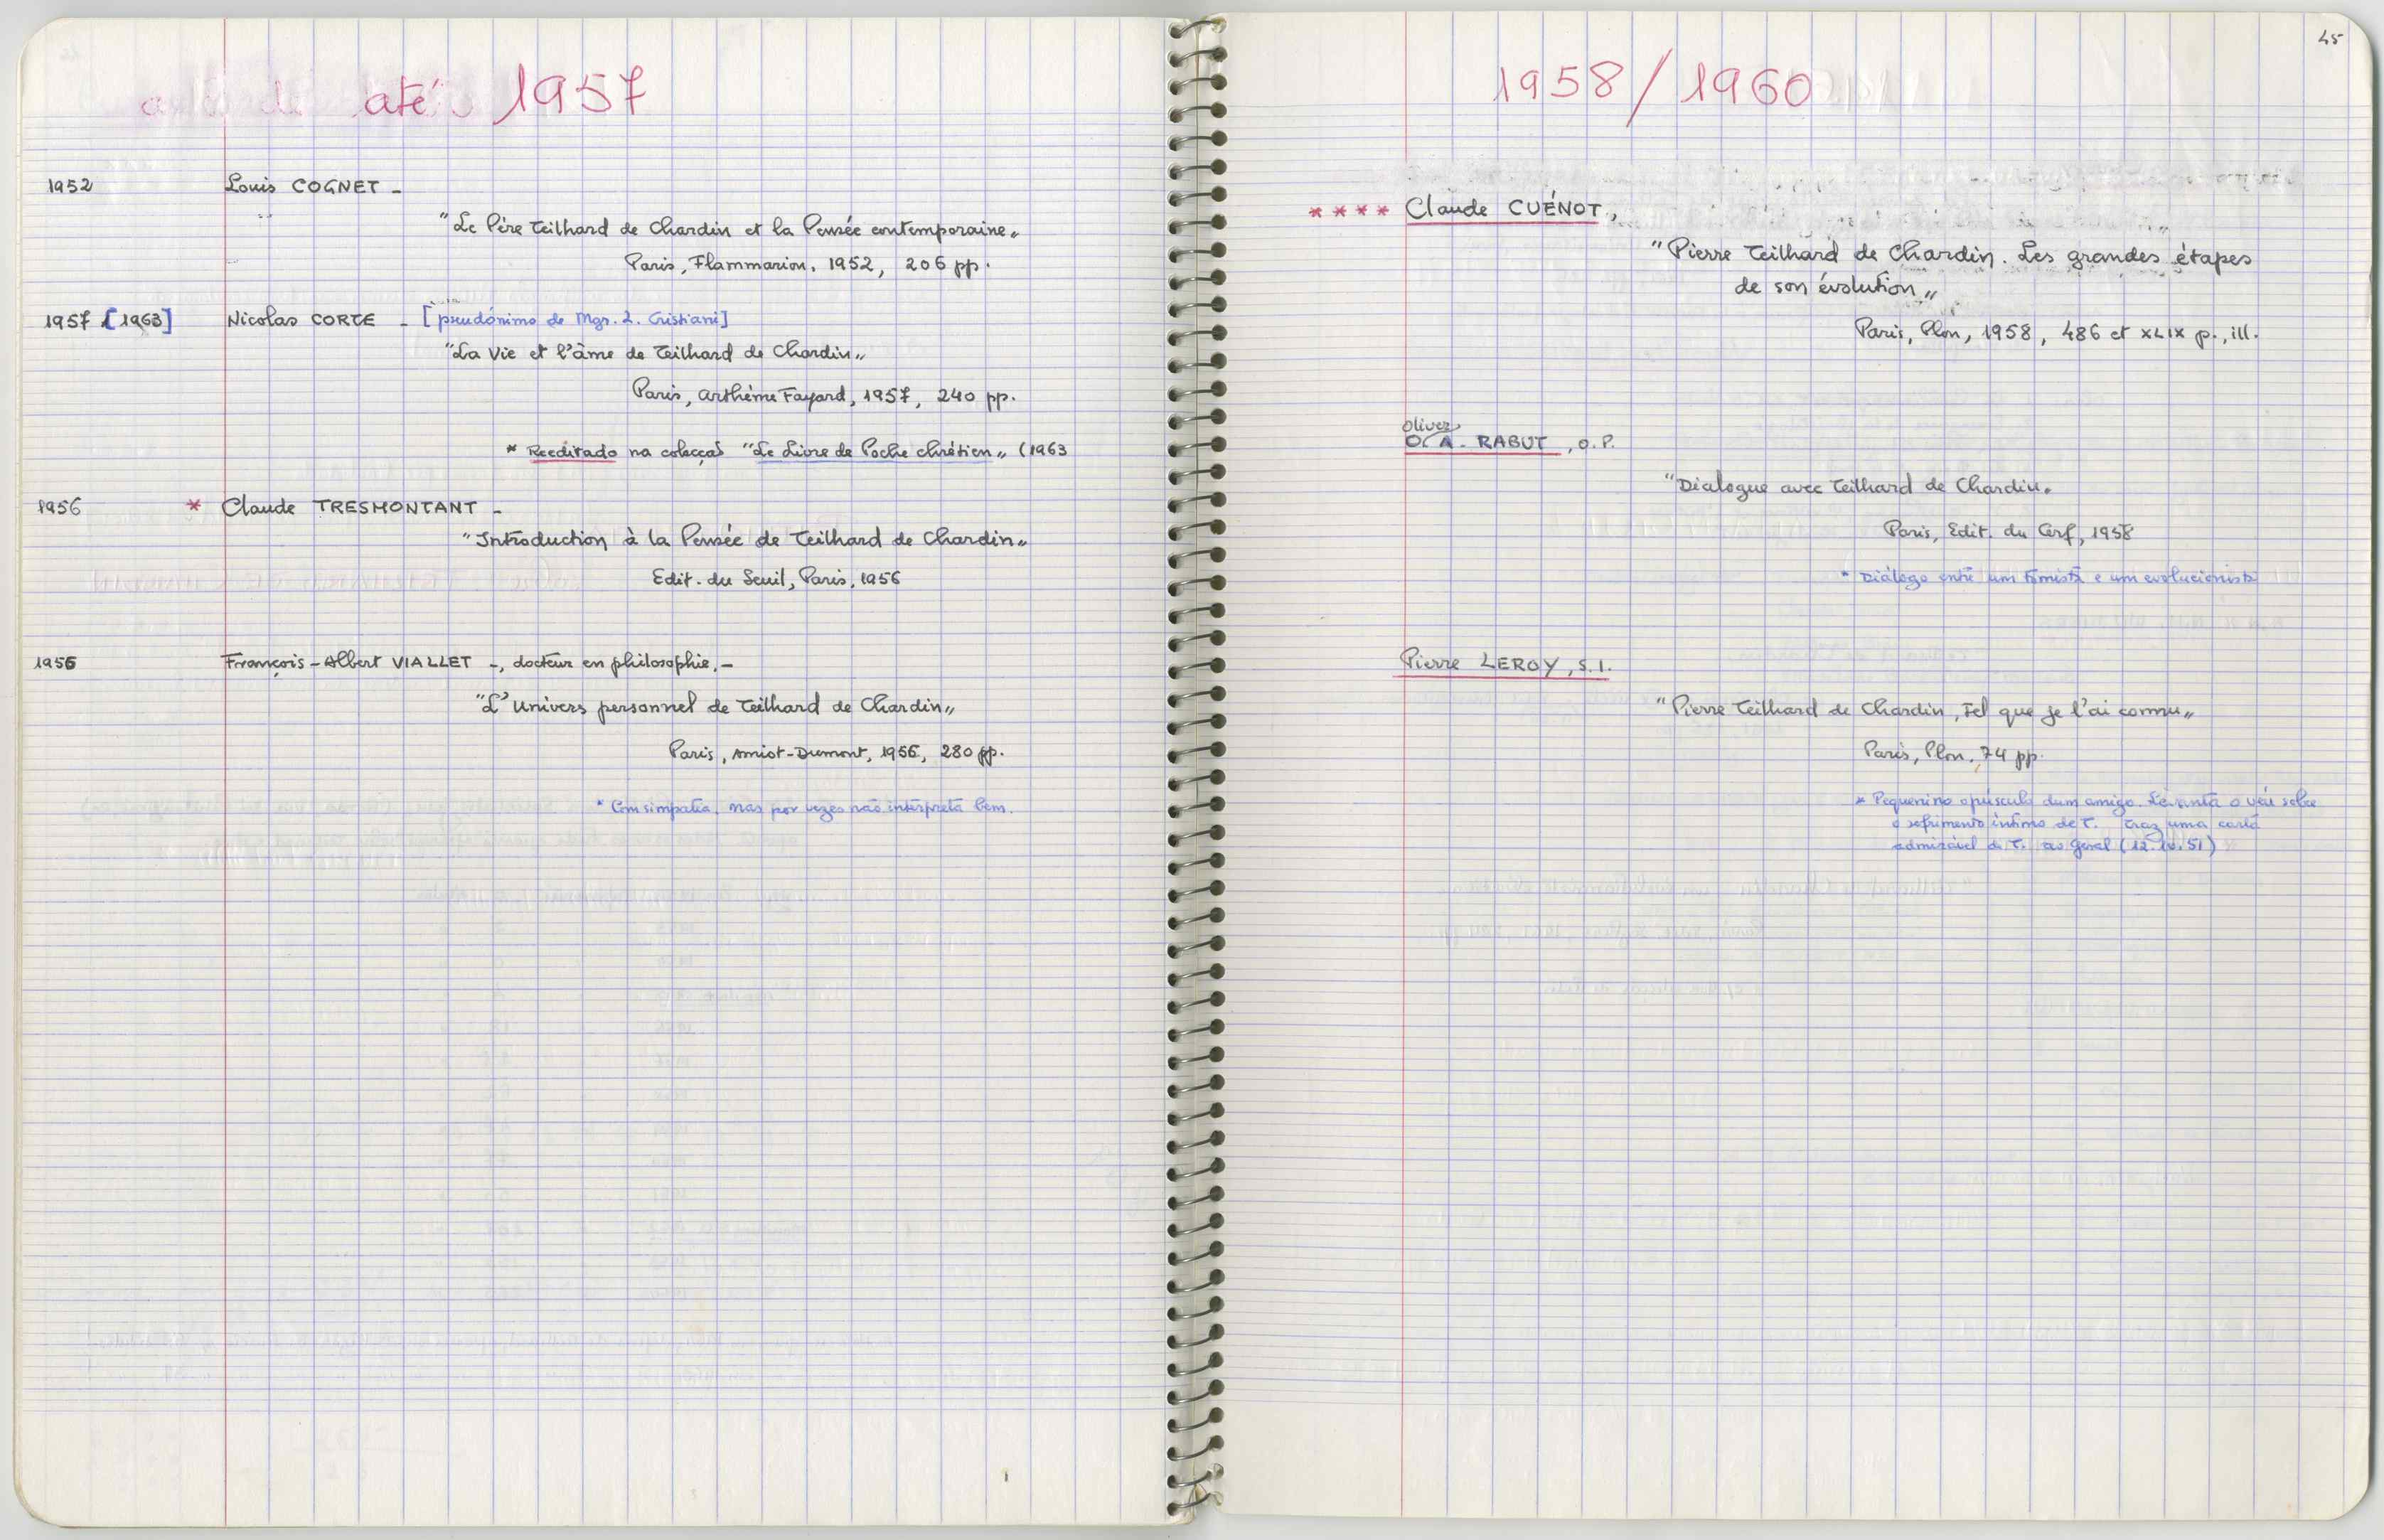 até 1957
1952 Louis COGNET -
"Le Père Teilhard de Chardin et la Pensée contemporaine"
Paris, Flammarion, 1952, 206 pp.
1957 [1963] Nicolas CORTE - [pseudónimo de Mgr. L. Cristiani]
"La Vie et l'âme de Teilhard de Chardin"
Paris, Arthème Fayard, 1957, 240 pp.
* Reeditado na colecção "Le Livre de Poche chrétien" (1963
1956 * Claude TRESMONTANT -
"Introduction à la Pensée de Teilhard de Chardin"
Edit. du Seuil, Paris, 1956
1955 François-Albert VIALLET -, docteur en philosophie. -
"L'Univers personnel de Teilhard de Chardin"
Paris, Amiot-Dumont, 1955, 280 pp.
* Com simpatia, mas por vezes não interpreta bem.
45
1958/1960
**** Claude CUÉNOT,
"Pierre Teilhard de Chardin. Les grandes étapes
de son évolution"
Paris, Plon, 1958, 486 et XLIX p., ill.
Oliver
O. A. RABUT, O.P.
"Dialogue avec Teilhard de Chardin.
Paris, Edit. du Cerf, 1958
* Diálogo entre um tomista e um evolucionista
Pierre LEROY, S.I.
"Pierre Teilhard de Chardin, tel que je l'ai connu"
Paris, Plon, 74 pp.
* Pequenino opúsculo dum amigo. Levanta o véu sobre
o sofrimento íntimo de T. Traz uma carta
admirável de T. ao Geral (12.10.51)